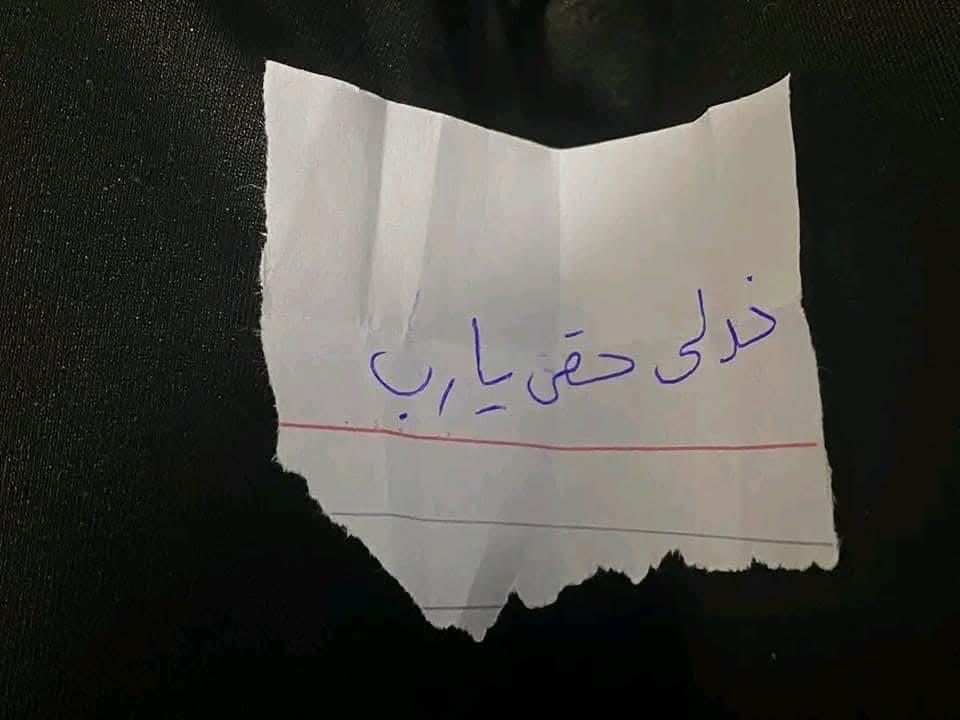 خدلى حقى يارب